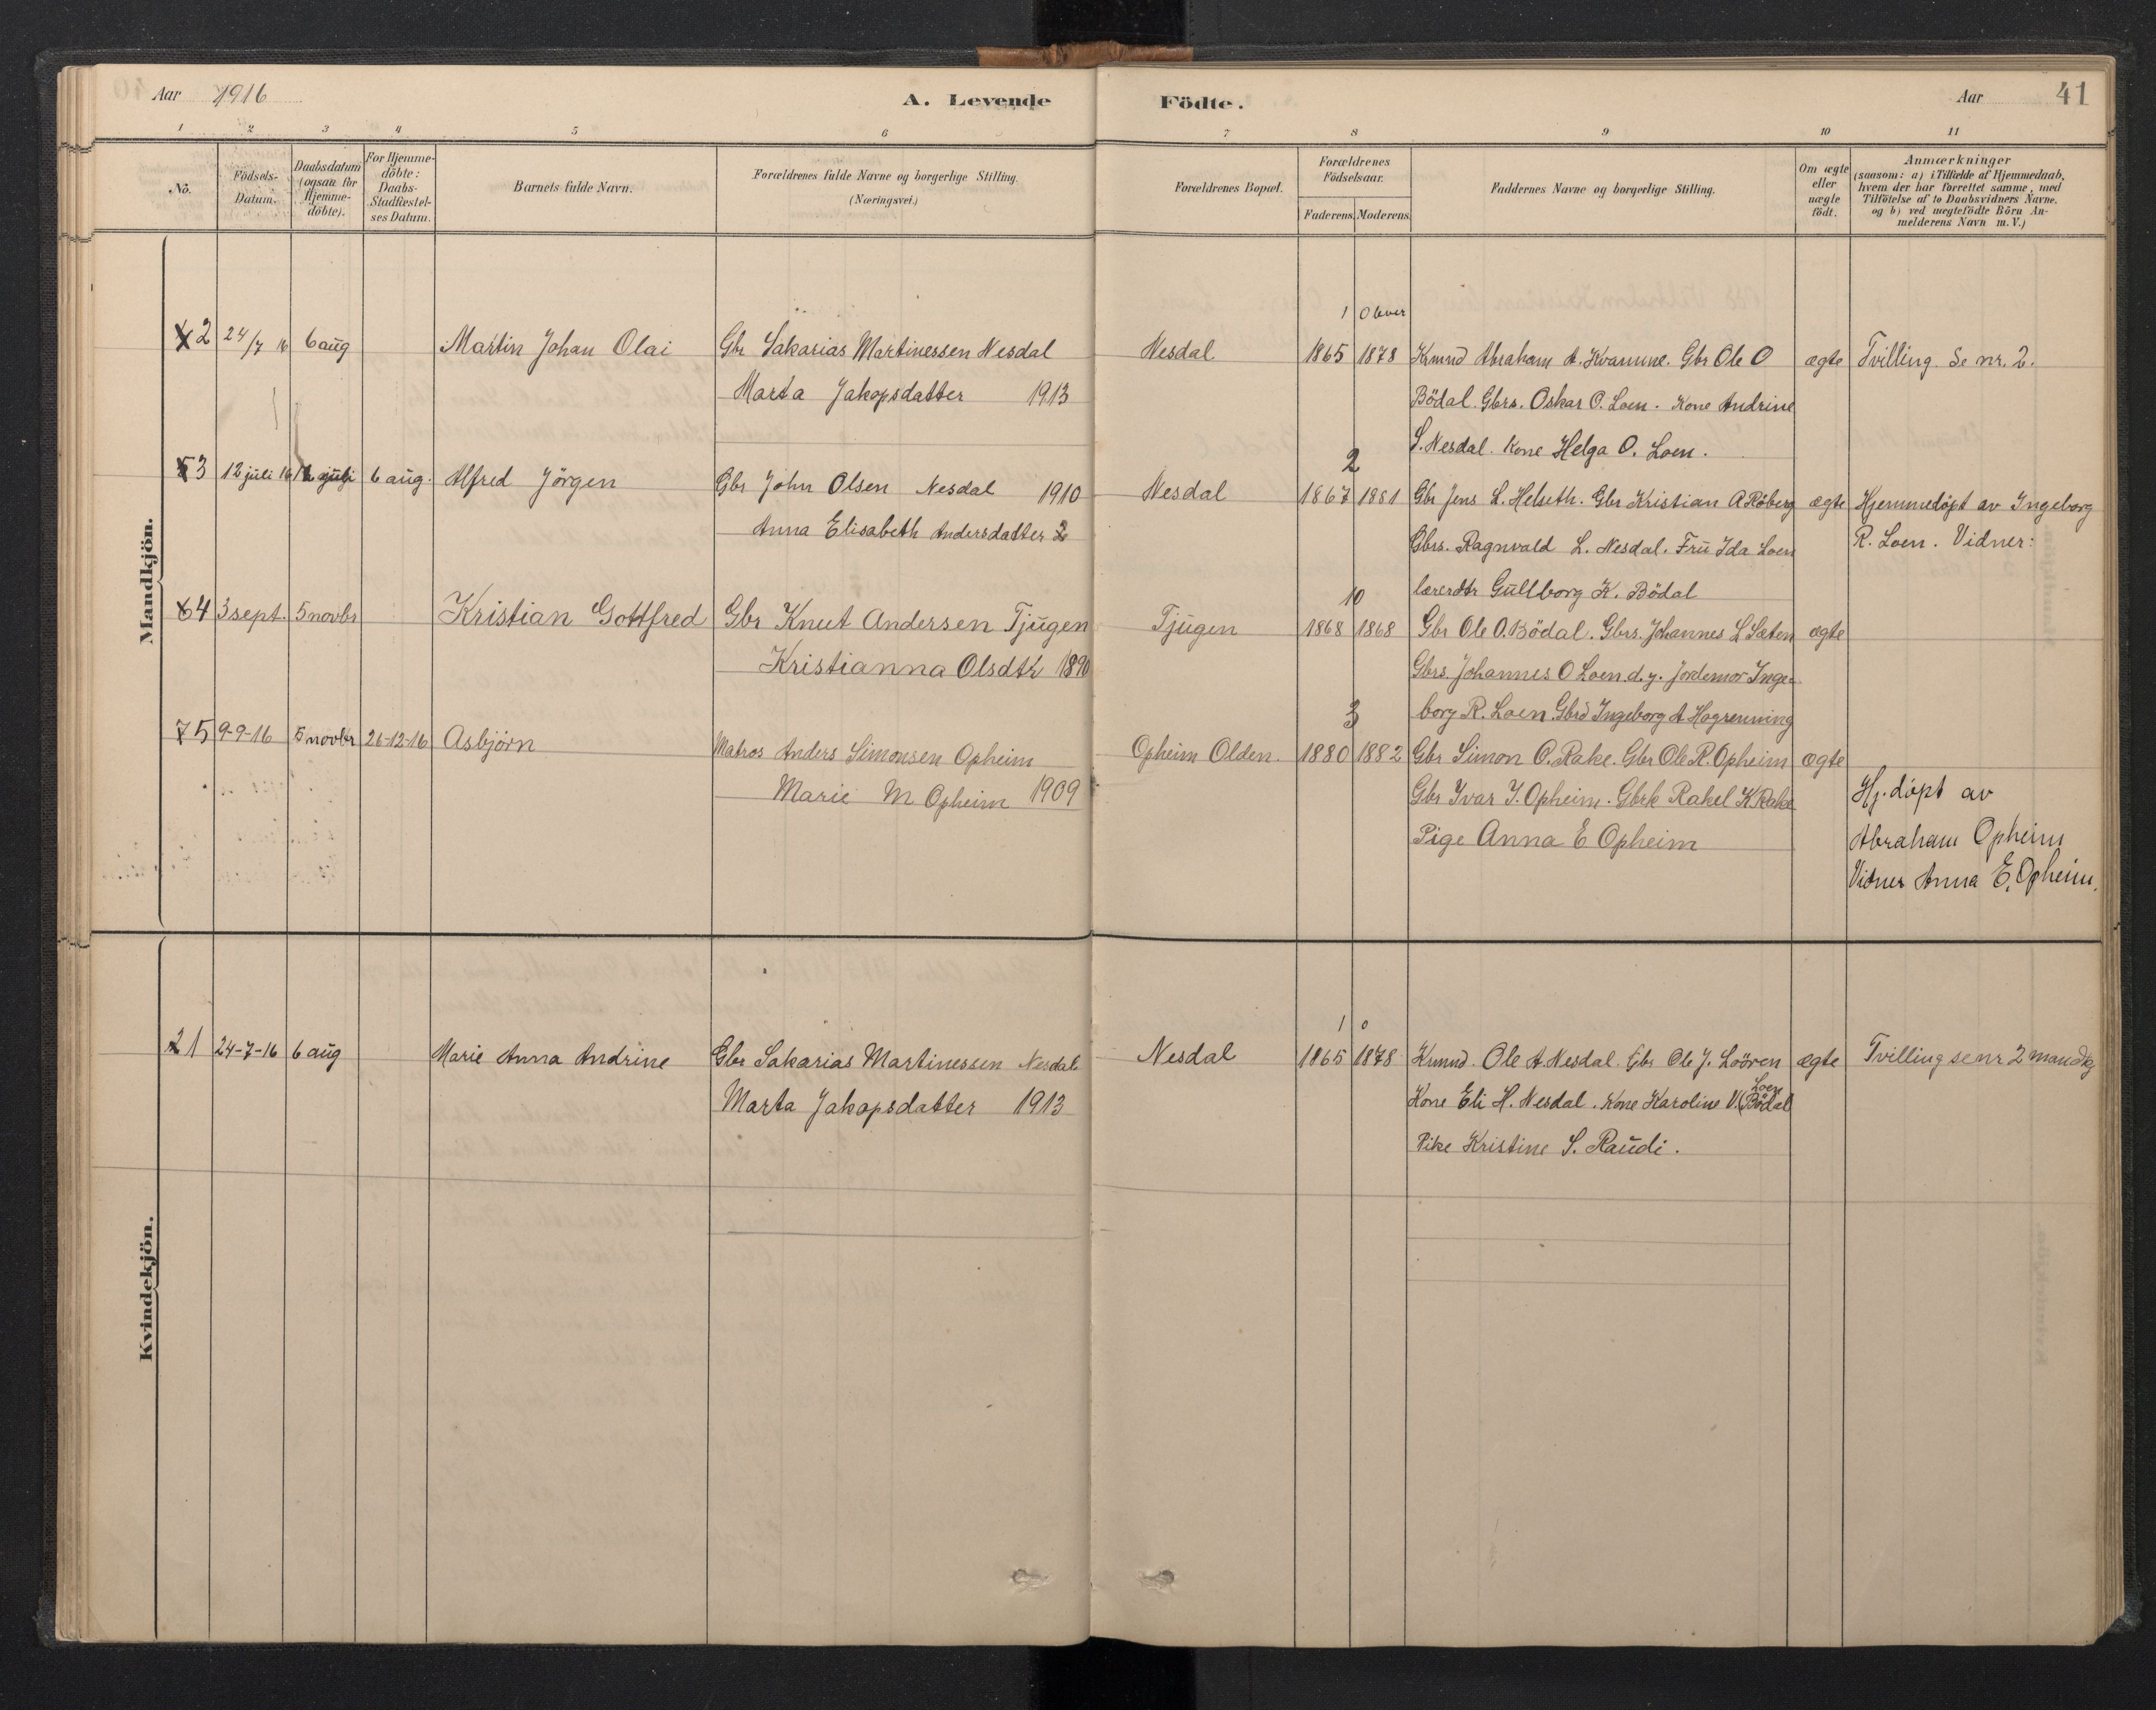 Aar 1916
A. Levende Födte.
Aar 41
1 2 3 4 5 6 7 8 9 10 11
No.
Födsels-Datum.
Daabsdatum (ogsaa for Hjemmedöbte).
For Hjemmedöbte: Daabs-Stadfæstelses Datum.
Barnets fulde Navn.
Forældrenes fulde Navne og borgerlige Stilling. (Næringsvei.)
Forældrenes Bopæl.
Forældrenes Födselsaar.
Faderens. Moderens.
Faddernes Navne og borgerlige Stilling.
Om ægte eller uægte födt.
Anmærkninger
(saasom: a) i Tilfælde af Hjemmedaab, hvem der har forrettet samme, med Tilföielse af to Daabsvidners Navne, og b) ved uægtefödte Börn Anmelderens Navn m. V.)
Mandkjön.
1 0
2 24/7 16 6 aug Martin Johan Olai Gbr Sakarias Martinessen Nesdal Nesdal 1865 1878 Kmnd Abraham A. Kvamme. Gbr Ole O ægte Tvilling. Se nr. 2.
Marta Jakopsdatter 1913 Bödal. Gbrs. Oskar O. Loen. Kone Andrine
S. Nesdal. Kone Helga O. Loen.
2
3 12 juli 16 juli 6 aug. Alfred Jörgen Gbr John Olsen Nesdal 1910 Nesdal 1867 1881 Gbr Jens L. Helseth. Gbr Kristian A Röberg ægte Hjemmedöpt av Ingeborg
Anna Elisabeth Andersdatter 2 Gbrs. Ragnvald L. Nesdal. Fru Ida Loen R. Loen. Vidner:
lærerdtr Gullborg K. Bödal
10
64 3 sept. 5 novbr Kristian Gottfred Gbr Knut Andersen Tjugen Tjugen 1868 1868 Gbr Ole O. Bödal. Gbrs. Johannes L Sæten ægte
Kristianna Olsdtr 1890 Gbrs. Johannes O Loen d.y. Jordemor Inge-
borg R. Loen. Ingeborg A Hogrenning
3
75 9-9-16 5 novbr 26-12-16 Asbjörn Matros Anders Simonsen Opheim Opheim Olden. 1880 1882 Gbr Simon O. Rake. Gbr Ole R. Opheim ægte
Marie M Opheim 1909 Gbr Ivar J. Opheim. Gbrk Rakel K Rake Hj. döpt av
Pige Anna E Opheim Abraham Opheim
Vidner Anna E. Opheim.
Kvindekjön.
1 0
21 24-7-16 6 aug Marie Anna Andrine Gbr Sakarias Martinessen Nesdal Nesdal 1865 1878 Kmnd. Ole A. Nesdal. Gbr Ole J. Loören ægte Tvilling se nr 2 mandkj
Loen
Marta Jakopsdatter 1913 Kone Eli H. Nesdal. Kone Karoline V. (Bödal
Pike Kristine S. Raudi.